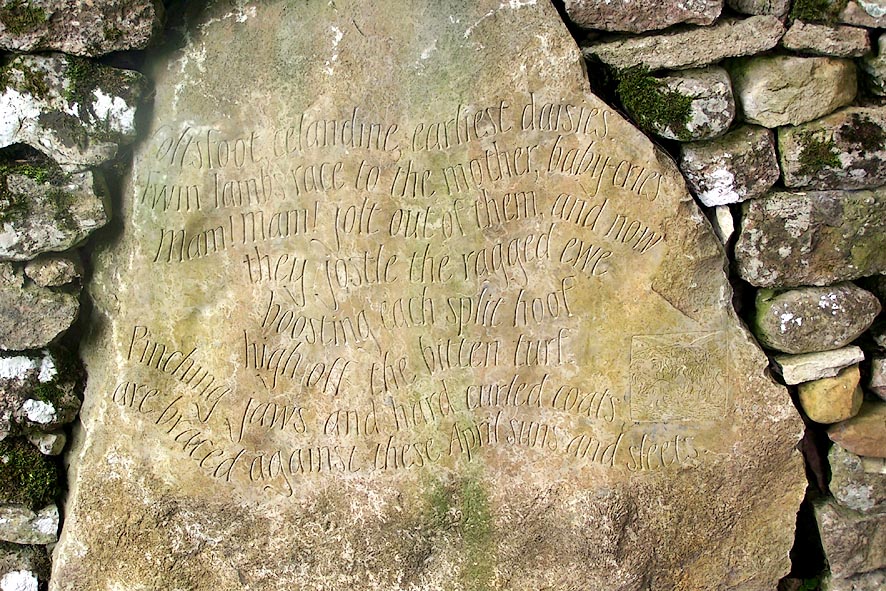 Coltsfoot, celandine, earliest daisies.
Twin lambs race to the mother, baby-cries
Mam! Mam! jolt out of them, and now
they jostle the ragged ewe
boosting each split hoof
high off the bitten turf.
Pinching jaws and hard curled coats
are braced against these April suns and sleets.